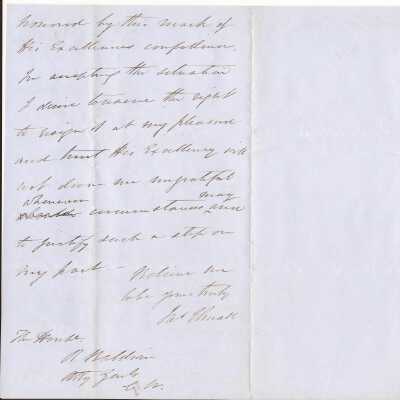 honored by this mark of
His Excellencies confidence.
In accepting the situation
I desire to reserve the right
to resign it at my pleasure
and trust His Excellency will
not deem me ungrateful
whenever may
circumstances arise
to justify such a step on
my part –
Believe me
to be yours truly
The Honble.
R Baldwin
Atty Genl.
C. W.